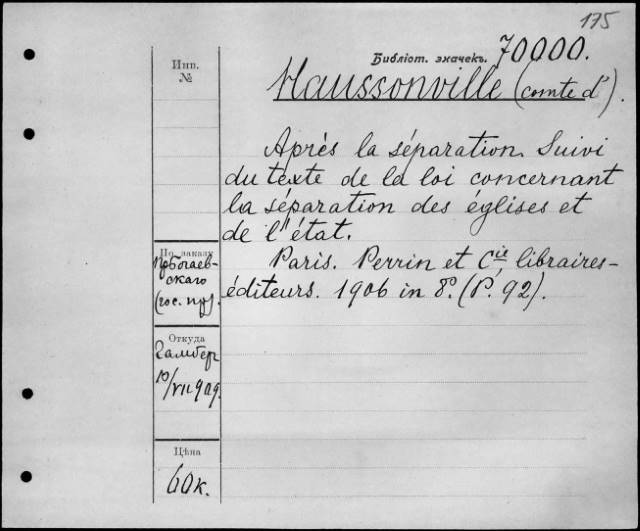 175
Библіот. значекъ. 70000.
Инв.
№
Haussonville (comte d').
Après la séparation. Suivi
du texte de la loi concernant
la séparation des églises et
de l'état.
Paris. Perrin et Cie libraires-
éditeurs. 1906 in 8°. (P. 92).
По заказу
скаго
(гос. пр).
Откуда
Гамбер
10/VII 909.
Цѣна
60к.